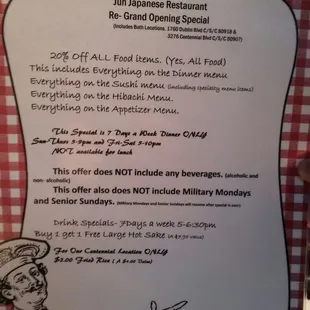 Jun Japanese Restaurant
Re- Grand Opening Special
(Includes Both Locations. 1760 Dublin Blvd C/S/C 80918 &
3276 Centennial Blvd C/S/C 80907)
20% Off ALL Food items. (Yes, All Food)
This includes Everything on the Dinner menu
Everything on the Sushi menu (including specialty menu items)
Everything on the Hibachi Menu.
Everything on the Appetizer Menu.
This Special is 7 Days a Week Dinner ONLY
Sun-Thurs 5-9pm and Fri-Sat 5-10pm
NOT available for lunch
This offer does NOT include any beverages. (alcoholic and
non- alcoholic)
This offer also does NOT include Military Mondays
and Senior Sundays. (Military Mondays and Senior Sundays will resume after special is over)
Drink Specials- 7Days a week 5-6:30pm
Buy 1 get 1 Free Large Hot Sake (A $7.50 value)
For Our Centennial Location ONLY
$2.00 Fried Rice (A $1.00 Value)